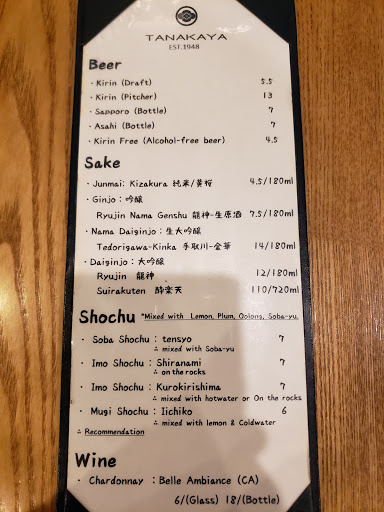 TANAKAYA
EST.1948
Beer
・Kirin (Draft) 5.5
・Kirin (Pitcher) 13
・Sapporo (Bottle) 7
・Asahi (Bottle) 7
・Kirin Free (Alcohol-free beer) 4.5
Sake
・Junmai: Kizakura 純米/黄桜 4.5/180ml
・Ginjo：吟醸
Ryujin Nama Genshu 龍神-生原酒 7.5/180ml
・Nama Daiginjo：生大吟醸
Tedorigawa-Kinka 手取川-金華 14/180ml
・Daiginjo：大吟醸
Ryujin 龍神 12/180ml
Suirakuten 酔楽天 110/720ml
Shochu *Mixed with Lemon, Plum, Oolong, Soba-yu.
・Soba Shochu：tensyo 7
∴ mixed with Soba-yu
・Imo Shochu：Shiranami 7
∴ on the rocks
・Imo Shochu：Kurokirishima 7
∴ mixed with hotwater or On the rocks
・Mugi Shochu：Iichiko 6
∴ mixed with lemon & Coldwater
∴ Recommendation
Wine
・Chardonnay ：Belle Ambiance (CA)
6/(Glass) 18/(Bottle)